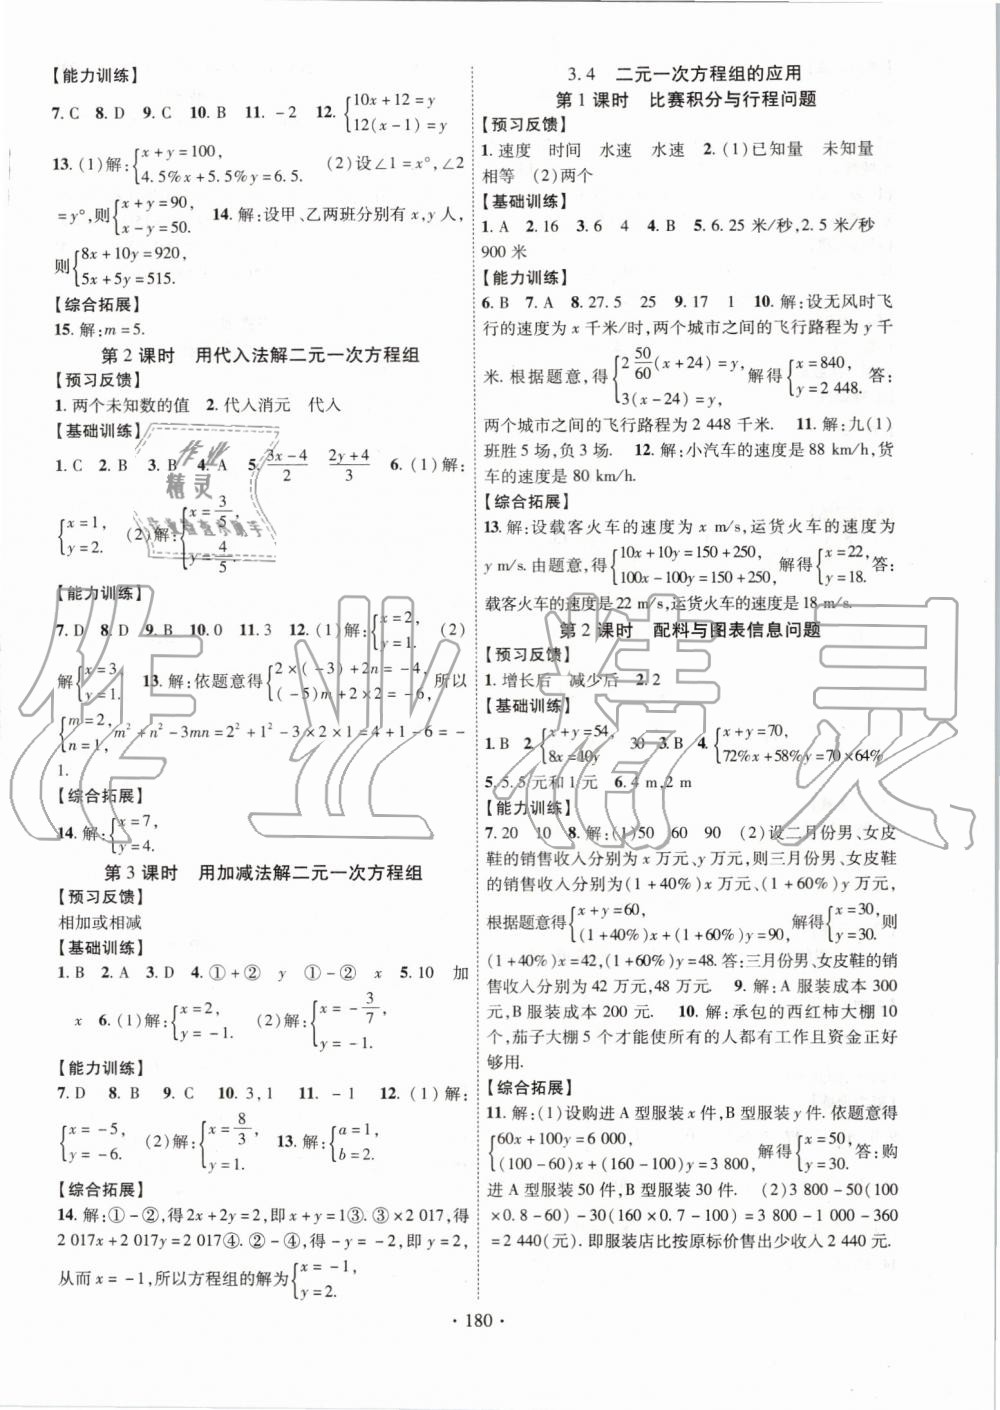 【能力训练】
7. C 8. D 9. C 10. B 11. －2 12. {10x＋12＝y
12(x－1)＝y
13. (1)解:{x＋y＝100,
4.5%x＋5.5%y＝6.5. (2)设∠1＝x°,∠2
＝y°,则{x＋y＝90,
x－y＝50. 14. 解:设甲、乙两班分别有 x,y 人,
则{8x＋10y＝920,
5x＋5y＝515.
【综合拓展】
15. 解:m＝5.
第 2 课时 用代入法解二元一次方程组
【预习反馈】
1. 两个未知数的值 2. 代人消元 代人
【基础训练】
1. C 2. B 3. B 4. A 5. (3x－4)/2 (2y＋4)/3 6. (1)解:
{x＝1,
y＝2. (2)解:{x＝3/5,
y＝4/5.
【能力训练】
7. D 8. D 9. B 10. 0 11. 3 12. (1)解:{x＝2,
y＝1. (2)
解{x＝3,
y＝1. 13. 解:依题意得{2×(－3)＋2n＝－4,
(－5)m＋2×2＝－6, 所以
{m＝2,
n＝1, m²＋n²－3mn＝2²＋1²－3×2×1＝4＋1－6＝－
1.
【综合拓展】
14. 解:{x＝7,
y＝4.
第 3 课时 用加减法解二元一次方程组
【预习反馈】
相加或相减
【基础训练】
1. B 2. A 3. D 4. ①＋② y ①－② x 5. 10 加
x 6. (1)解:{x＝2,
y＝－1. (2)解:{x＝－3/7,
y＝－1.
【能力训练】
7. D 8. B 9. C 10. 3,1 11. －1 12. (1)解:
{x＝－5,
y＝－6. (2)解:{x＝8/3,
y＝1. 13. 解:{a＝1,
b＝2.
【综合拓展】
14. 解:①－②,得 2x＋2y＝2,即 x＋y＝1③. ③×2 017,得
2 017x＋2 017y＝2 017④. ②－④,得－y＝－2,即 y＝2,
从而 x＝－1,所以方程组的解为{x＝－1,
y＝2.
3.4 二元一次方程组的应用
第 1 课时 比赛积分与行程问题
【预习反馈】
1. 速度 时间 水速 水速 2. (1)已知量 未知量
相等 (2)两个
【基础训练】
1. A 2. 16 3. 6 4 4. B 5. 6.25 米/秒,2.5 米/秒
900 米
【能力训练】
6. B 7. A 8. 27.5 25 9. 17 1 10. 解:设无风时飞
行的速度为 x 千米/时,两个城市之间的飞行路程为 y 千
米. 根据题意,得{2 50/60(x＋24)＝y,
3(x－24)＝y, 解得{x＝840,
y＝2 448. 答:
两个城市之间的飞行路程为 2 448 千米. 11. 解:九(1)
班胜 5 场,负 3 场. 12. 解:小汽车的速度是 88 km/h,货
车的速度是 80 km/h.
【综合拓展】
13. 解:设载客火车的速度为 x m/s,运货火车的速度为
y m/s. 由题意,得{10x＋10y＝150＋250,
100x－100y＝150＋250, 解得{x＝22,
y＝18. 答:
载客火车的速度是 22 m/s,运货火车的速度是 18 m/s.
第 2 课时 配料与图表信息问题
【预习反馈】
1. 增长后 减少后 2. 2
【基础训练】
1. B 2. {x＋y＝54,
8x＝10y 30 3. B 4. {x＋y＝70,
72%x＋58%y＝70×64%
5. 5.5 元和 1 元 6. 4 m,2 m
【能力训练】
7. 20 10 8. 解:(1)50 60 90 (2)设二月份男、女皮
鞋的销售收入分别为 x 万元、y 万元,则三月份男、女皮鞋
的销售收入分别为(1＋40%)x 万元、(1＋60%)y 万元,
根据题意得{x＋y＝60,
(1＋40%)x＋(1＋60%)y＝90, 解得{x＝30,
y＝30. 则
(1＋40%)x＝42,(1＋60%)y＝48. 答:三月份男、女皮鞋的销
售收入分别为 42 万元,48 万元. 9. 解:A 服装成本 300
元,B 服装成本 200 元. 10. 解:承包的西红柿大棚 10
个,茄子大棚 5 个才能使所有的人都有工作且资金正好
够用.
【综合拓展】
11. 解:(1)设购进 A 型服装 x 件,B 型服装 y 件. 依题意得
{60x＋100y＝6 000,
(100－60)x＋(160－100)y＝3 800, 解得{x＝50,
y＝30. 答:购
进 A 型服装 50 件,B 型服装 30 件. (2)3 800－50(100
×0.8－60)－30(160×0.7－100)＝3 800－1 000－360
＝2 440(元). 即服装店比按原标价售出少收入 2 440 元.
· 180 ·
作业精灵
作业
精灵